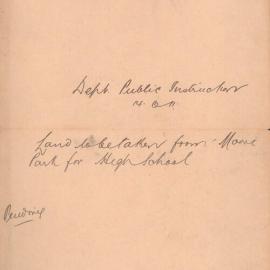 Dept. Public Instruction
Land to be taken from Moore
Park for High School
Pending